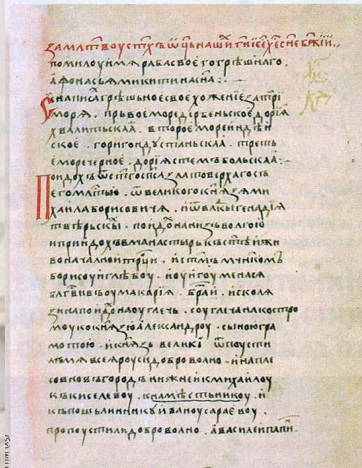 За млт҃воу ст҃хъ ѡц҃ь нашиⷯ ги҃ іс҃е хе҃ сн҃е бж҃їи
помилоуи мѧ раба своего грѣшнаго
афонасьѧ микитина сн҃а :~
Написа грѣшьное свое хоженїе за три
морѧ . прьвое море дербеньское дорїа
хвалитьскаа . второе море индѣи
ское . горигондустаньскаа . треть
е море черное . дорїа стемъбольскаа :~
Поидохъ ѿ ст҃го сп҃са златоверхаго съ
его млт҃їю . ѿ великого кн҃ѕѧ ми
хаила борисовичѧ . и ѿ влⷣкы генадїѧ
твѣрьскыⷯ . поидоⷯ на низъ волгою
и приидохъ в манастырь къ ст҃ѣи жи
воначалнои трⷪци . и ст҃мъ мч҃нкомъ
борисоу и глѣбоу . и оу игоумена сѧ
бл҃гвивъ оу макарїа . братїи . и с колѧ
зина поидоⷯ на оуглечь . с оуглеча на костро
моу ко кн҃ѕю александроу . с ыною гра
мотою . и кн҃ѕь великїи ѿпоусти
мѧ всеѧ роуси доброволно . и на пле
со в новъгородъ нижнеи к михаилоу
к киселевоу . к намѣстьникоу . и
къ пошьлинникоу ивану сараевоу .
пропоустили доброволно . а василеи папиⷩ .